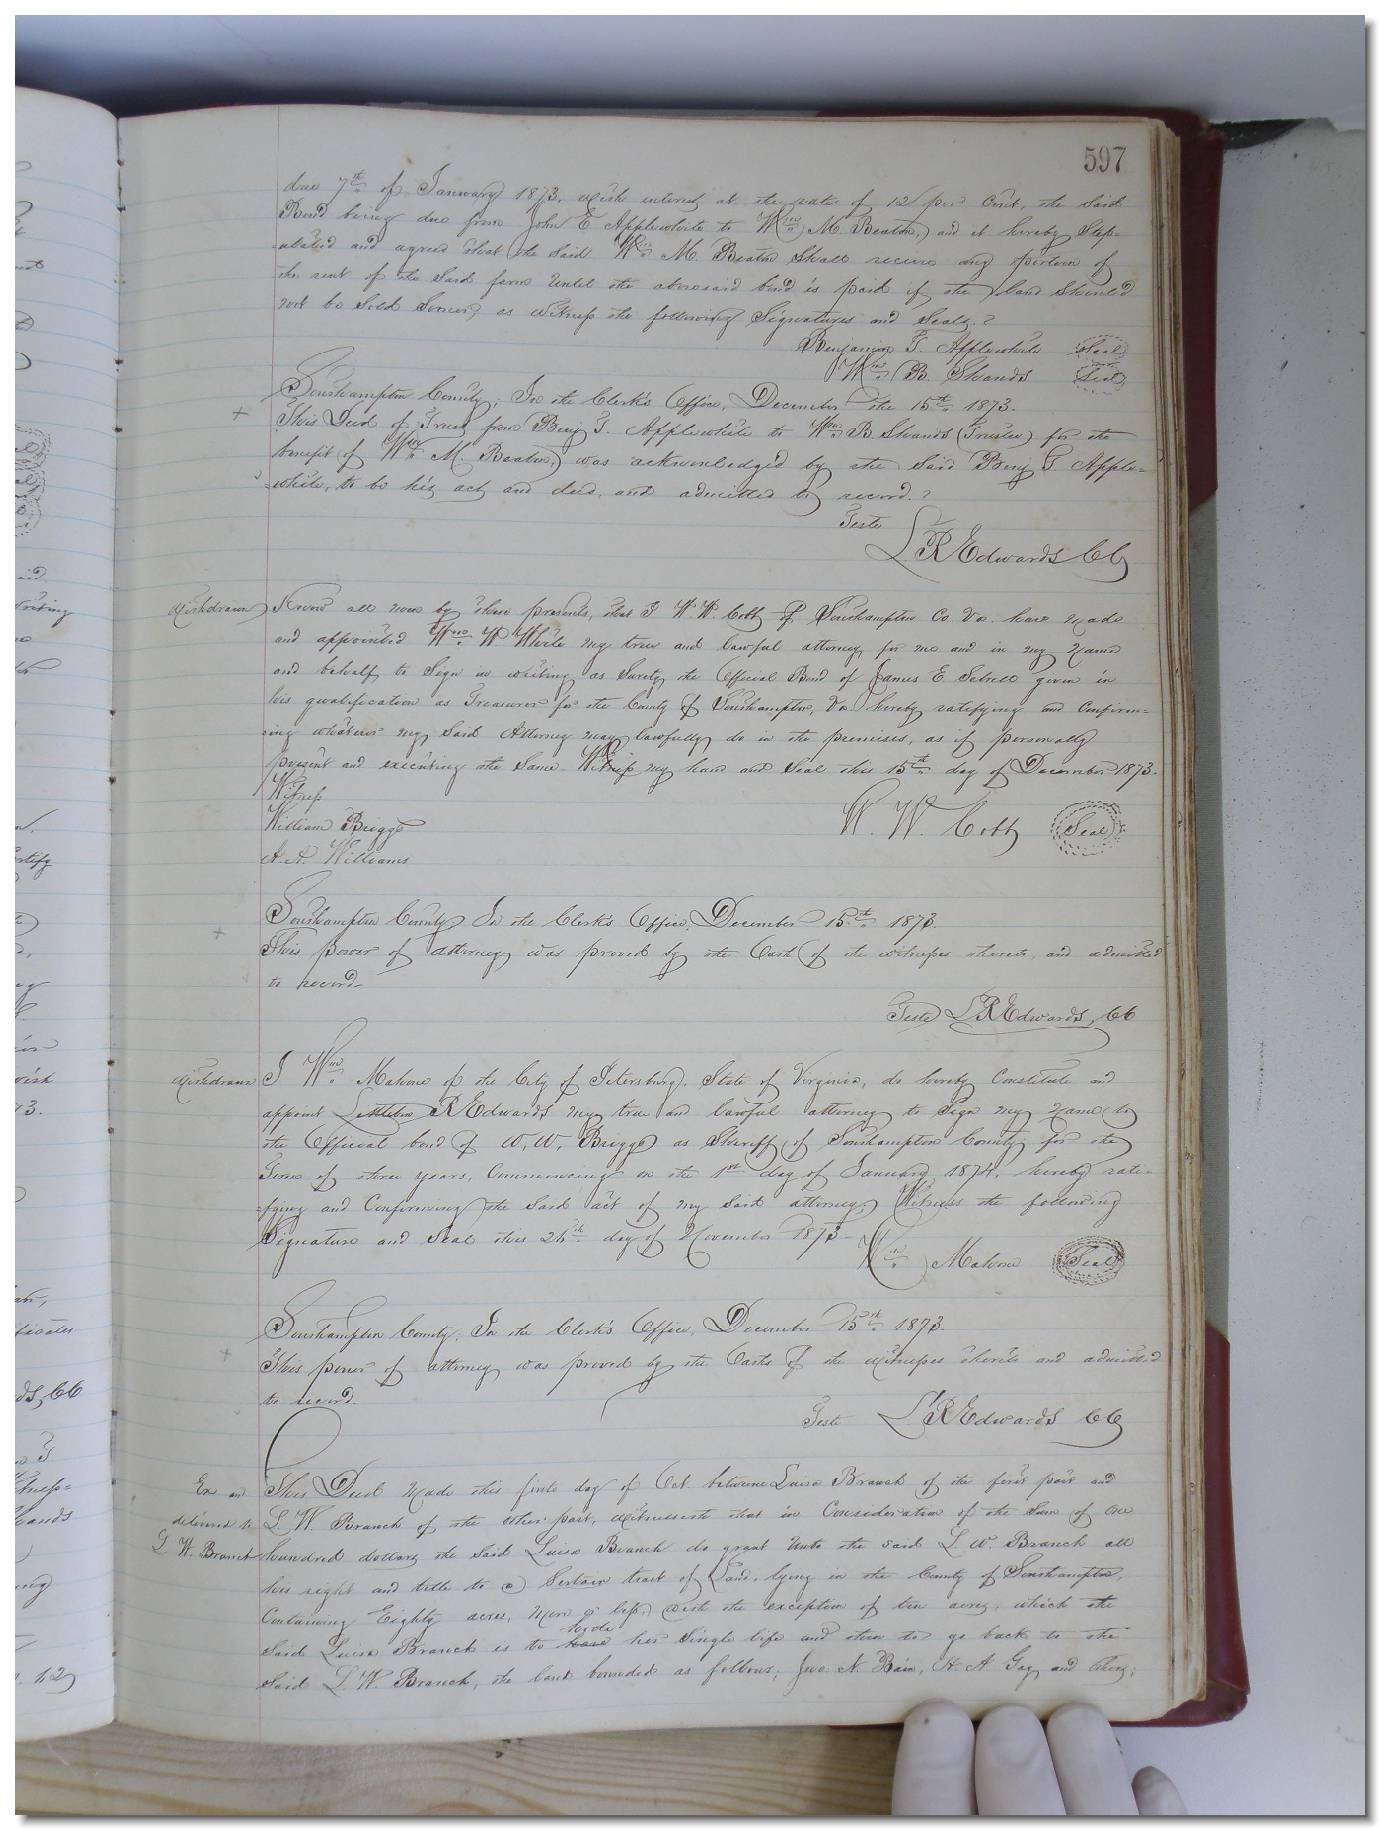 597
due 7th of January 1873, with interest at the rate of 12 per Cent, the said
Bond being due from John E. Applewhite to Wm M. Beaton, and it hereby Stip=
ulated and agreed that the said Wm M. Beaton Shall receive any portion of
the rent of the said farm Until the aforesaid bond is paid if the land Should
not be Sold Sooner, as witness the following Signatures and Seals.
Benjamin T. Applewhite Seal
Wm B. Shands Seal
Southampton County; In the Clerk's Office, December the 15th 1873.
This Deed of Trust from Benj T. Applewhite to Wm B. Shands (Trustee) for the
benefit of Wm M. Beaton, was acknowledged by the Said Benj T. Apple=
=white, to be his act and deed, and admitted to record.
Teste
L R Edwards CC
Withdrawn Know all men by these presents, that I W W. Cobb of Southampton Co. Va. have made
and appointed Wm W White my true and lawful attorney for me and in my Name
and behalf, to Sign in writing as Surety the Official Bond of James E. Sebrell given in
his qualification as Treasurer for the County of Southampton, Va. hereby ratifying and Confirm=
ing whatever my said Attorney may lawfully do in the premises, as if personally
present and executing the Same Witness my hand and Seal this 15th day of December 1873.
Witness
William Briggs W. W. Cobb Seal
Williams
Southampton County In the Clerk's Office, December 15th 1873.
This power of attorney was proved by the Oath of the witnesses thereto, and admitted
to record.
Teste L R Edwards, CC
Withdrawn I Wm Mahone of the City of Petersburg, State of Virginia, do hereby Constitute and
appoint Littleton R Edwards my true and lawful attorney to Sign my Name to
the Official bond of W. W. Briggs as Sheriff of Southampton County for the
Term of three years, Commencing on the 1st day of January 1874, hereby rati=
=fying and Confirming the said act of my said attorney. Witness the following
Signature and Seal this day of November 1873
Wm Mahone Seal
Southampton County, In the Clerk's Office, December 15th 1873.
This power of attorney was proved by the Oaths of the witnesses thereto and admitted
to record.
Teste L R Edwards CC
Ex and This Deed Made this day of Oct. between Luisa Branch of the first part and
delivered to L. W. Branch of the other part, witnesseth that in Consideration of the Sum of one
L W. Branch hundred dollars the said Luisa Branch do grant Unto the said L. W. Branch all
her right and title to a Certain tract of Land, lying in the County of Southampton,
Containing Eighty acres, More or less, with the exception of ten acres, which the
hold
Said Luisa Branch is to have her Single life and then to go back to the
Said L. W. Branch, the land bounded as follows; Jno. N. Bain, H. A. Gay and